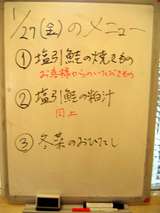 1/27(金)のメニュー
① 塩引鮭の焼きもの
お客様からのいただきもの
② 塩引鮭の粕汁
同上
③ 冬菜のおひたし